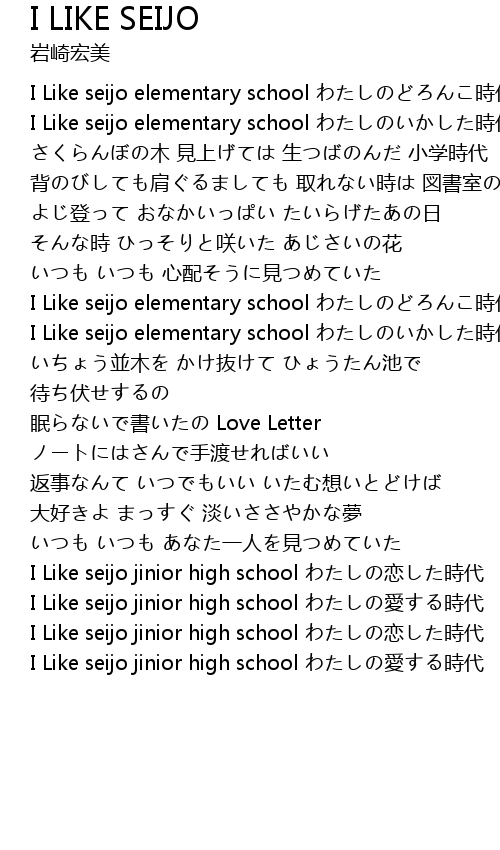 I LIKE SEIJO
岩崎宏美
I Like seijo elementary school わたしのどろんこ時
I Like seijo elementary school わたしのいかした時
さくらんぼの木 見上げては 生つばのんだ 小学時代
背のびしても肩ぐるましても 取れない時は 図書室の
よじ登って おなかいっぱい たいらげたあの日
そんな時 ひっそりと咲いた あじさいの花
いつも いつも 心配そうに見つめていた
I Like seijo elementary school わたしのどろんこ時
I Like seijo elementary school わたしのいかした時
いちょう並木を かけ抜けて ひょうたん池で
待ち伏せするの
眠らないで書いたの Love Letter
ノートにはさんで手渡せればいい
返事なんて いつでもいい いたむ想いとどけば
大好きよ まっすぐ 淡いささやかな夢
いつも いつも あなた一人を見つめていた
I Like seijo jinior high school わたしの恋した時代
I Like seijo jinior high school わたしの愛する時代
I Like seijo jinior high school わたしの恋した時代
I Like seijo jinior high school わたしの愛する時代